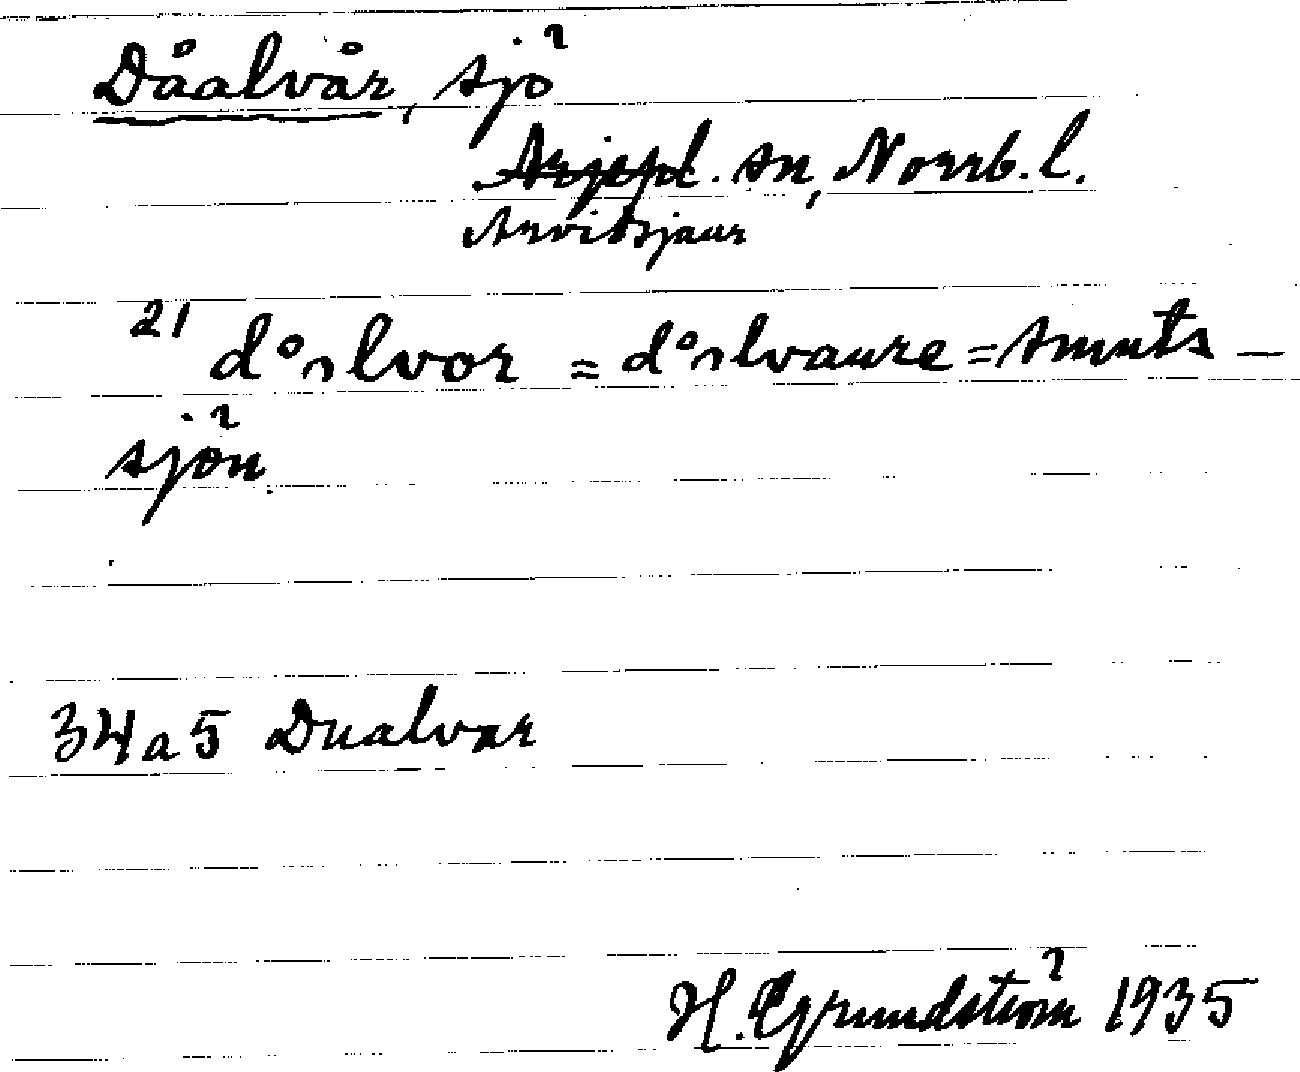 Dåalvår, sjö
Arjepl. sn, Norrb. l.
Arvidsjaur
21 d°ɿlvor = d°ɿlvaure = smuts-
sjön.
34 a 5 Dualvar
H. Grundström 1935